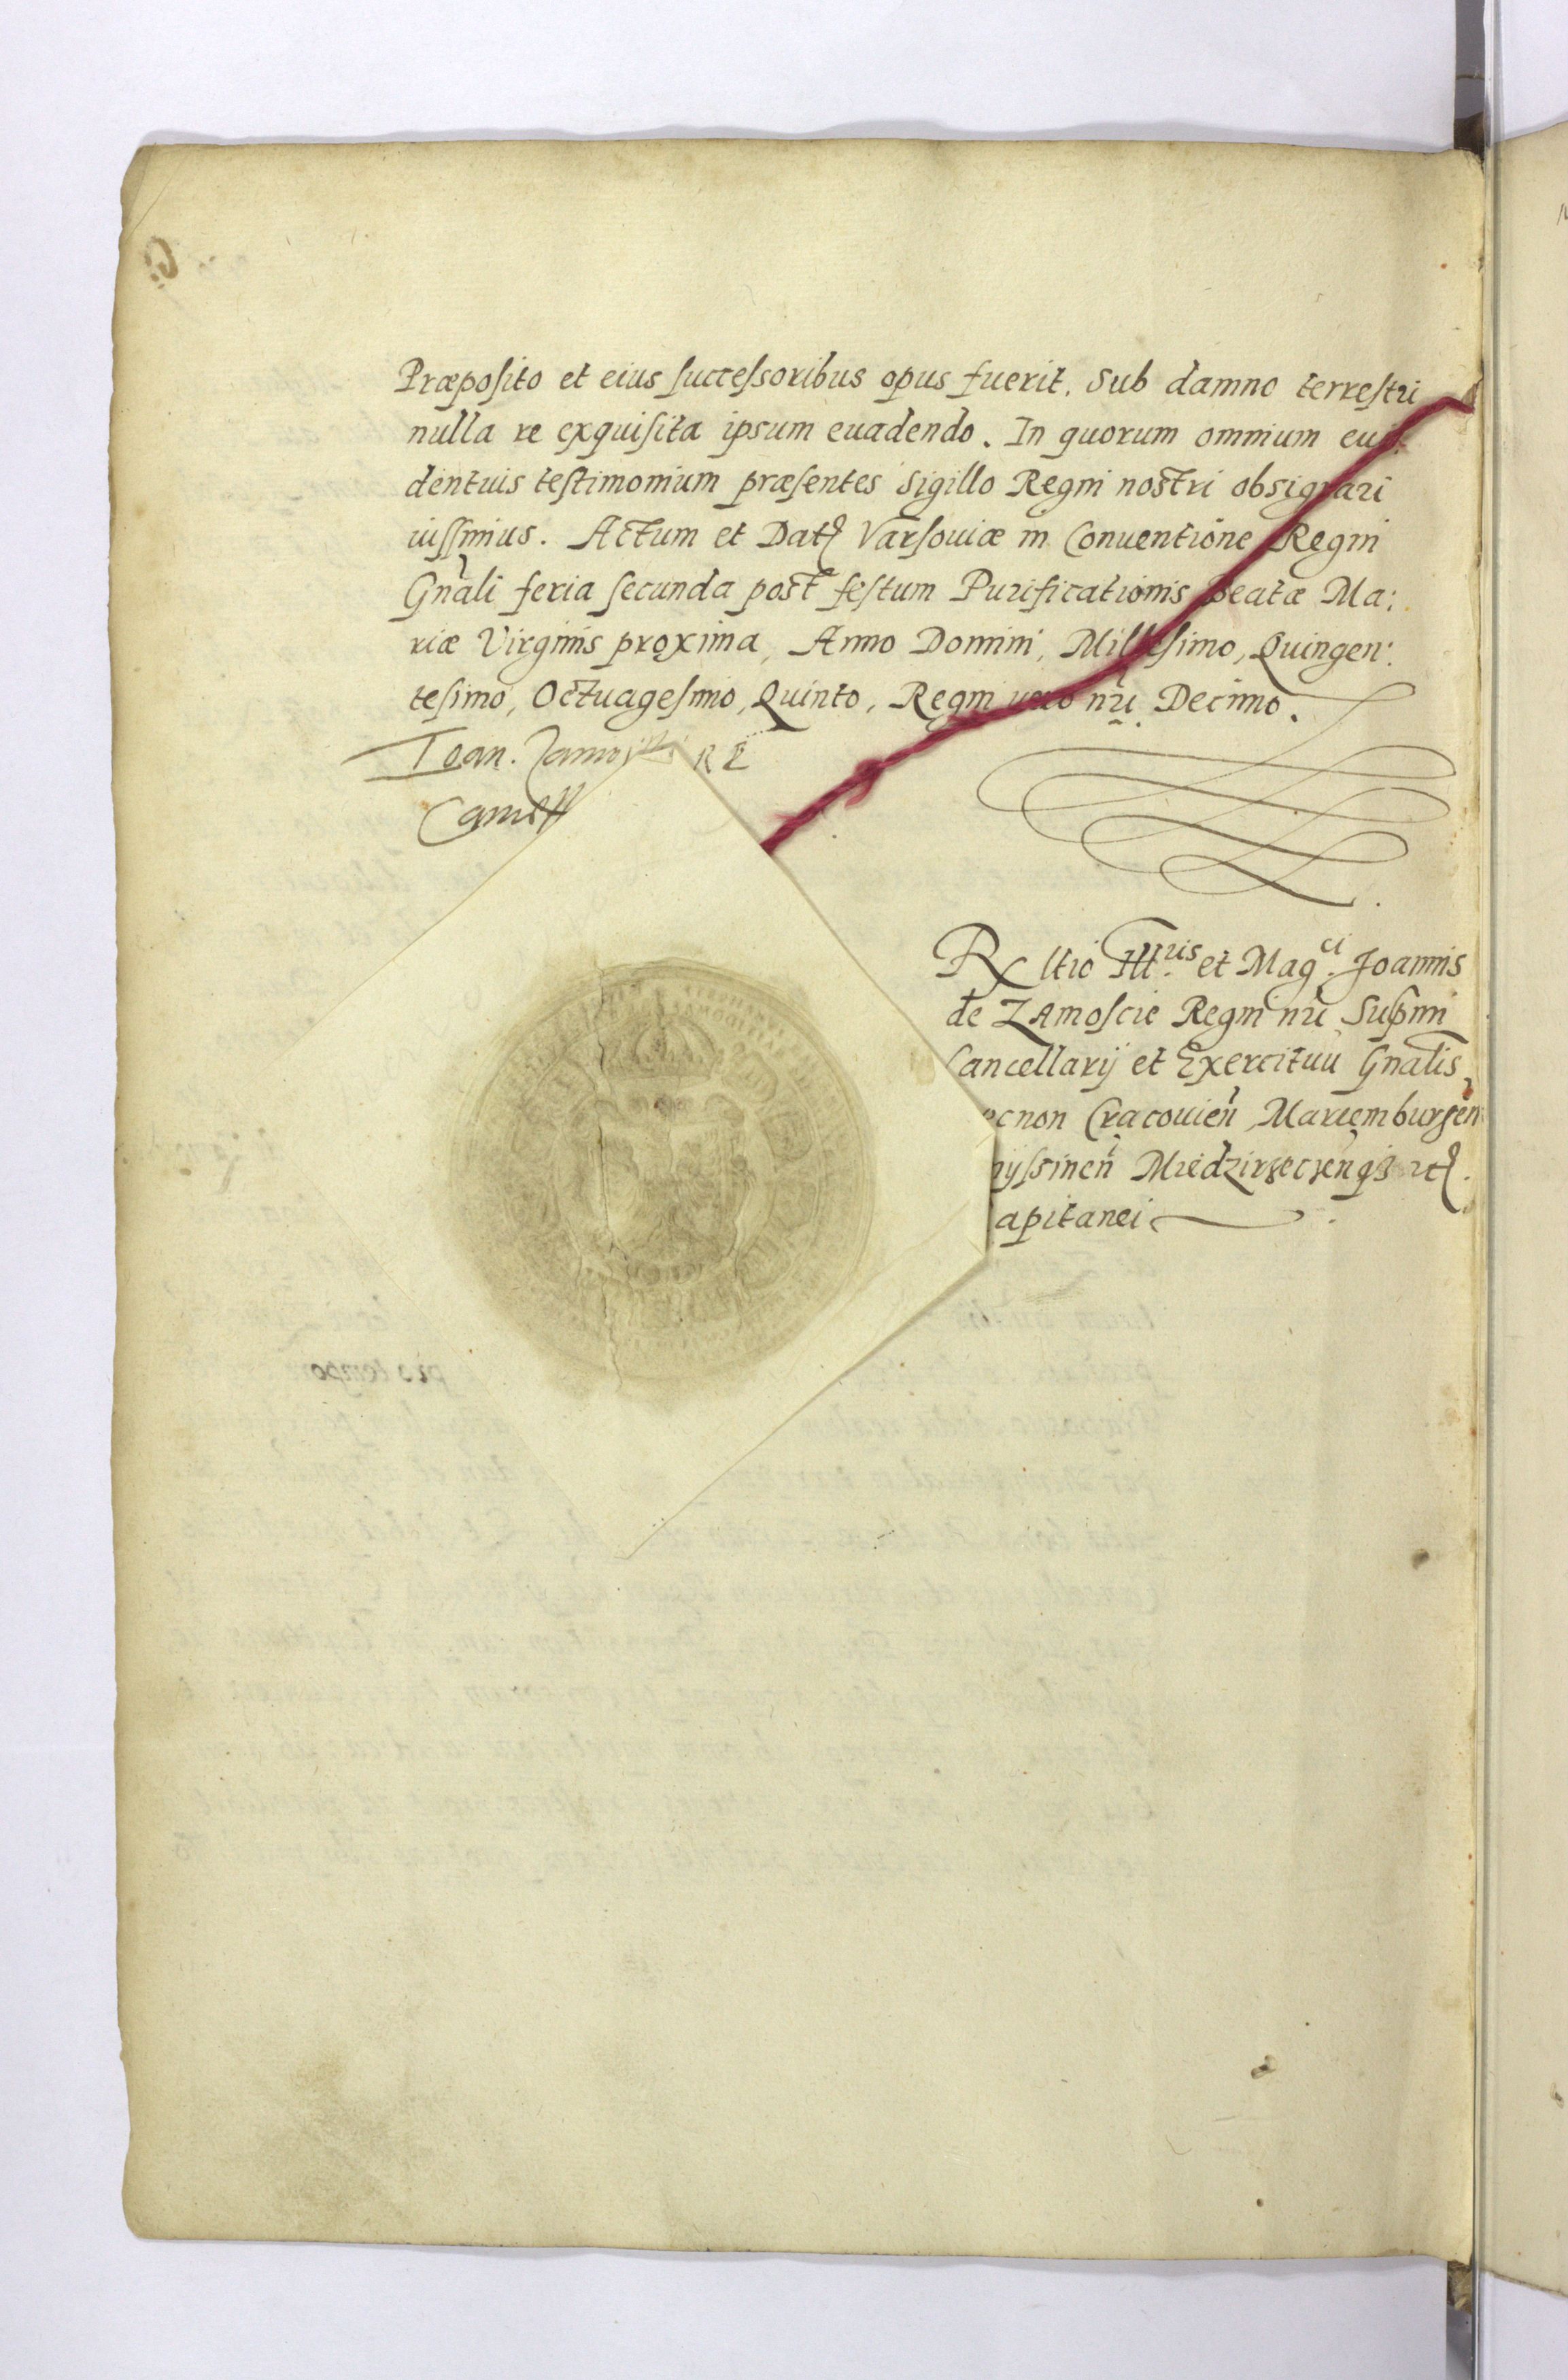 Præposito et eius successoribus opus fuerit. Sub damno terrestri
nulla re exquisita ipsum euadendo. In quorum omnium eui:
dentius testimonium præsentes Sigillo Regni nostri obsignari
iussimus. Actum et Datꝭ Varsouiæ in Conuentione Regni
Gnãli feria secunda post festum Purificationis Beatæ Ma:
riæ Virginis proxima, Anno Domini, Millesimo, Quingen:
tesimo, Octuagesimo, Quinto, Regni vero nri Decimo.
Ioan. R E
Canc
Rltio Illris et Magci. Joannis
de Zamoscie Regni nri Supmi
Cancellarij et Exercituu Gnalis
ecnon Cracouien Mariemburgen
ijssinen Miedzirzecien
apitanei
pro tempo